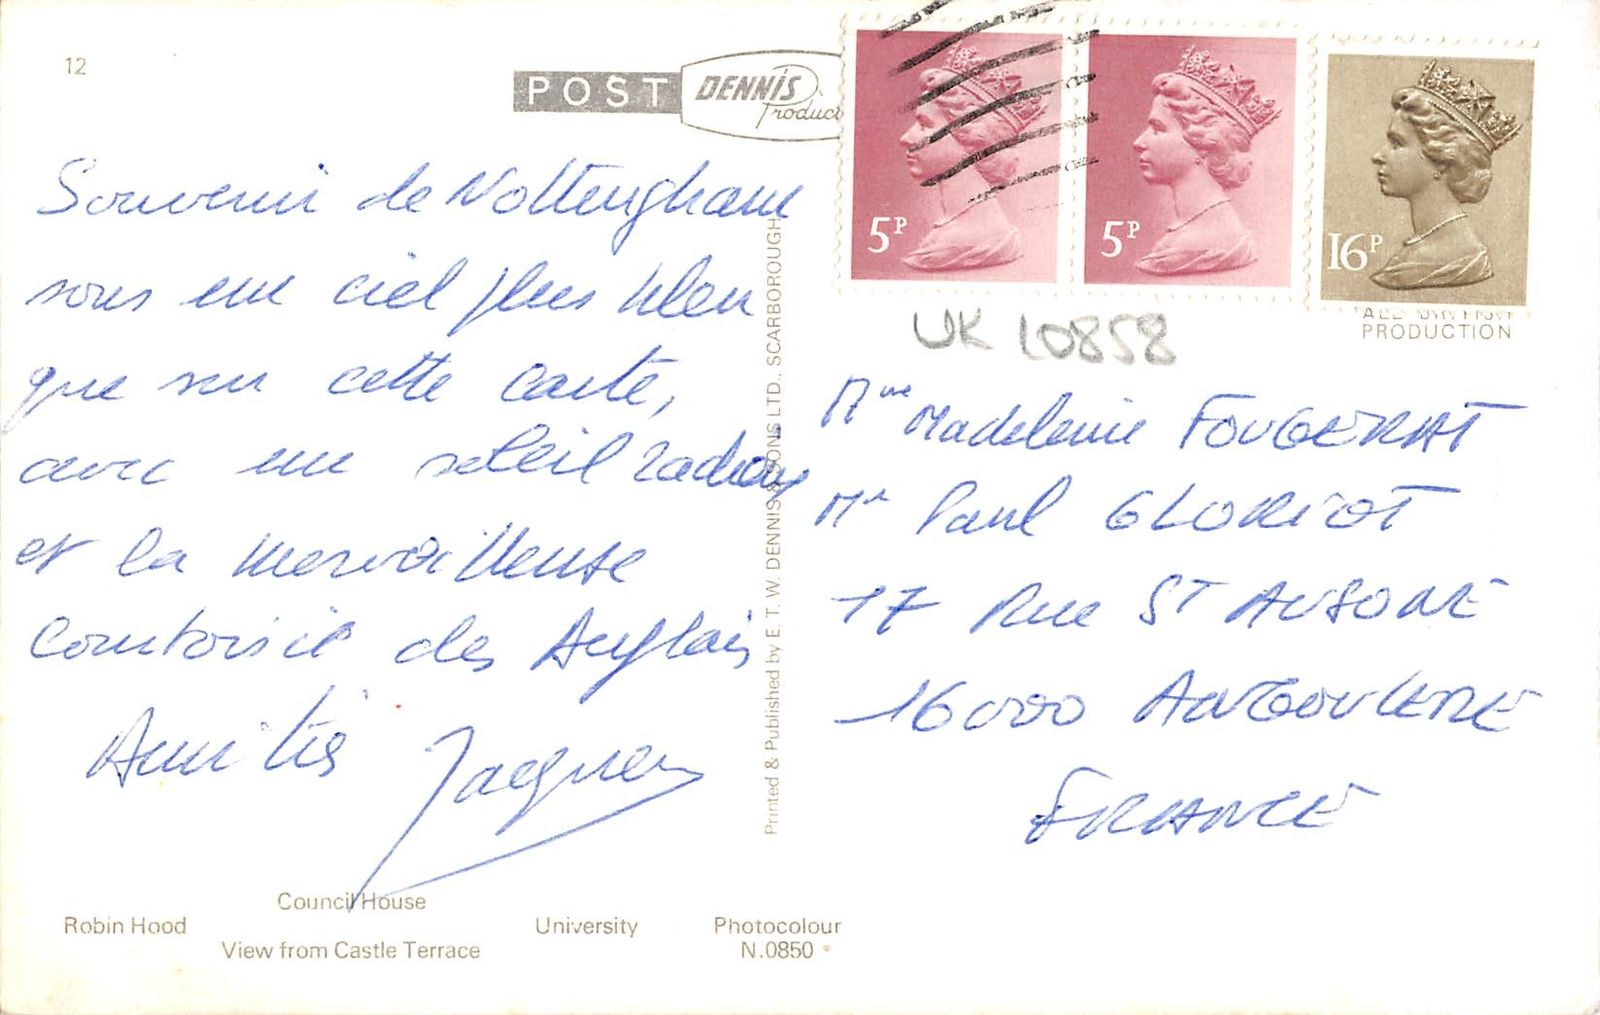 12
POST
DENNIS
Produc
5P
5P
16P
PRODUCTION
UK 10858
Souvenir de Nottingham
sous un ciel plus bleu
que sur cette carte,
avec un soleil radieux
et la merveilleuse
Courtoisie des Anglais
Amitiés Jacques
Mme Madeleine FOUGERAT
Mr Paul GLORIOT
17 Rue ST AUSONE
16000 ANGOULEME
FRANCE
Printed & Published by E. T. W. DENNIS & SONS LTD., SCARBOROUGH
Council House
Robin Hood
University
Photocolour
View from Castle Terrace
N.0850